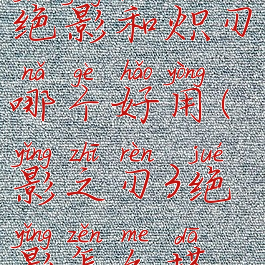 绝影和炽刃
nǎ gè hǎo yòng
哪个好用(
yǐng zhī rèn jué
影之刃3绝
yǐng zěn me dā
影怎么搭